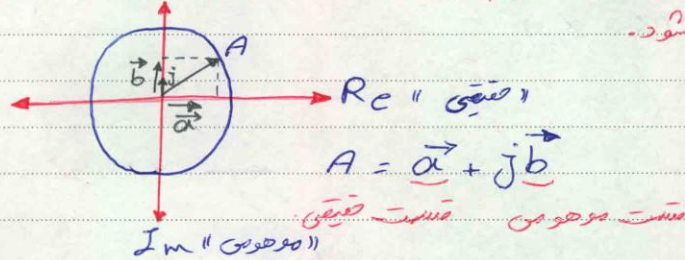 شود.
A
b⃗ j
a⃗
Re "حقیقی"
A = a⃗ + jb⃗
قسمت موهومی قسمت حقیقی
Im "موهومی"